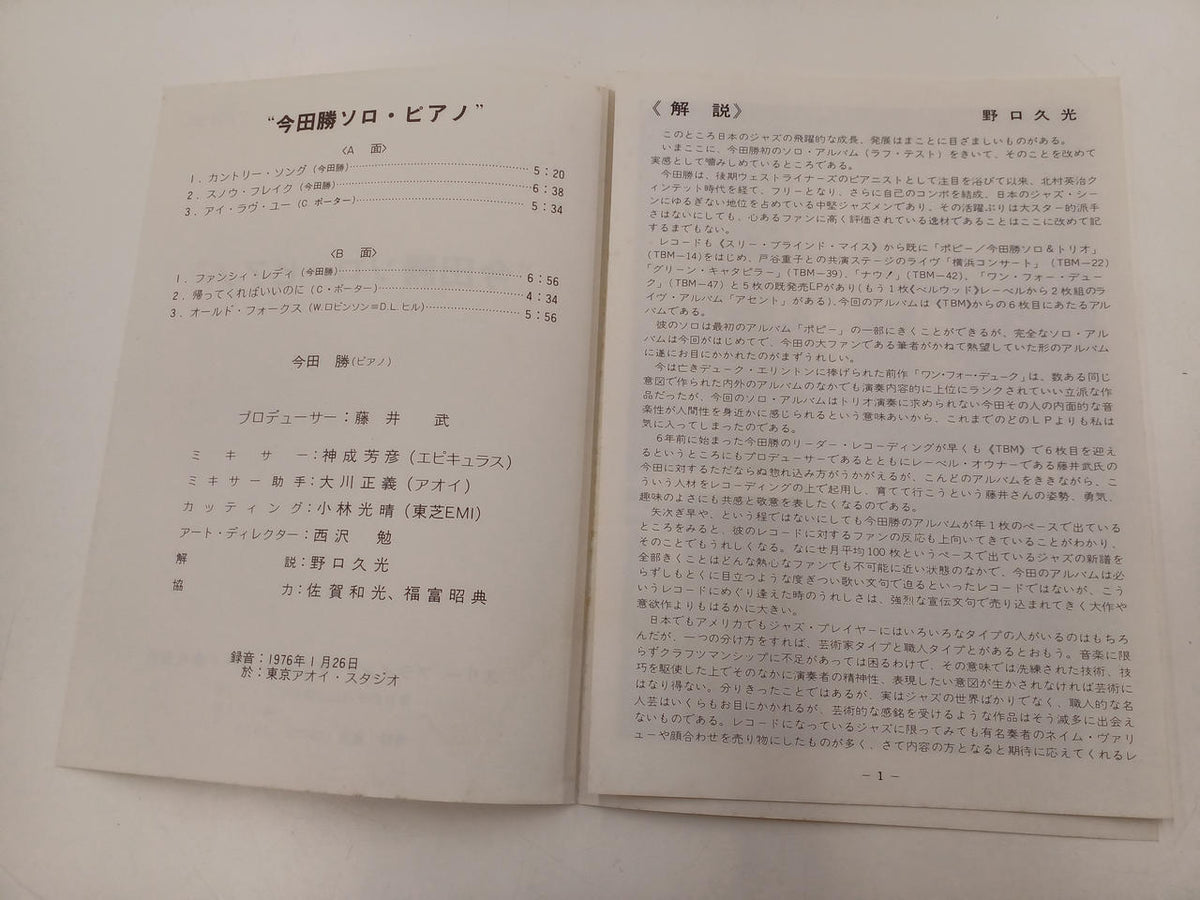 “今田勝ソロ・ピアノ”
〈A 面〉
1. カントリー・ソング (今田勝)……5:20
2. スノウ・フレイク (今田勝)……6:38
3. アイ・ラヴ・ユー (C. ポーター)……5:34
〈B 面〉
1. ファンシィ・レディ (今田勝)……6:56
2. 帰ってくればいいのに (C・ポーター)……4:34
3. オールド・フォークス (W.ロビンソン=D.L.ヒル)……5:56
今田 勝(ピアノ)
プロデューサー：藤井 武
ミキサー：神成芳彦(エピキュラス)
ミキサー助手：大川正義(アオイ)
カッティング：小林光晴(東芝EMI)
アート・ディレクター：西沢 勉
解説：野口久光
協力：佐賀和光、福富昭典
録音：1976年1月26日
於：東京アオイ・スタジオ
《解 説》 野口久光
このところ日本のジャズの飛躍的な成長、発展はまことに目ざましいものがある。
いまここに、今田勝初のソロ・アルバム（ラフ・テスト）をきいて、そのことを改めて
実感として噛みしめているところである。
今田勝は、後期ウェストライナーズのピアニストとして注目を浴びて以来、北村英治ク
ィンテット時代を経て、フリーとなり、さらに自己のコンボを結成、日本のジャズ・シー
ンにゆるぎない地位を占めている中堅ジャズメンであり、その活躍ぶりは大スター的派手
さはないにしても、心あるファンに高く評価されている逸材であることはここに改めて記
するまでもない。
レコードも《スリー・ブラインド・マイス》から既に「ポピー／今田勝ソロ＆トリオ」
(TBM-14)をはじめ、戸谷重子との共演ステージのライヴ「横浜コンサート」(TBM-22)
「グリーン・キャタピラー」(TBM-39)、「ナウ！」(TBM-42)、「ワン・フォー・デュー
ク」(TBM-47) と5枚の既発売LPがあり(もう1枚《ベルウッド》レーベルから2枚組のラ
イヴ・アルバム「アセント」がある)、今回のアルバムは《TBM》からの6枚目にあたるアル
バムである。
彼のソロは最初のアルバム「ポピー」の一部にきくことができるが、完全なソロ・アル
バムは今回がはじめてで、今田の大ファンである筆者がかねて熱望していた形のアルバム
に遂にお目にかかれたのがまずうれしい。
今は亡きデューク・エリントンに捧げられた前作「ワン・フォー・デューク」は、数ある同じ
意図で作られた内外のアルバムのなかでも演奏内容的に上位にランクされていい立派な作
品だったが、今回のソロ・アルバムはトリオ演奏に求められない今田その人の内面的な音
楽性が人間性を身近かに感じられるという意味あいから、これまでのどのLPよりも私は
気に入ってしまったのである。
6年前に始まった今田勝のリーダー・レコーディングが早くも《TBM》で6枚目を迎え
るというところにもプロデューサーであるとともにレーベル・オウナーである藤井武氏の
今田に対するただならぬ惚れ込み方がうかがえるが、こんどのアルバムをききながら、こ
ういう人材をレコーディングの上で起用し、育てて行こうという藤井さんの姿勢、勇気、
趣味のよさにも共感と敬意を表したくなるのである。
矢次ぎ早や、という程ではないにしても今田勝のアルバムが年1枚のペースで出ている
ところをみると、彼のレコードに対するファンの反応も上向いてきていることがわかり、
そのことでもうれしくなる。なにせ月平均100枚というペースで出ているジャズの新譜を
全部きくことはどんな熱心なファンでも不可能に近い状態のなかで、今田のアルバムは必
らずしもとくに目立つような度ぎつい歌い文句で迫るといったレコードではないが、こう
いうレコードにめぐり逢えた時のうれしさは、強烈な宣伝文句で売り込まれてきく大作や
意欲作よりもはるかに大きい。
日本でもアメリカでもジャズ・プレイヤーにはいろいろなタイプの人がいるのはもちろ
んだが、一つの分け方をすれば、芸術家タイプと職人タイプとがあるとおもう。音楽に限
らずクラフツマンシップに不足があっては困るわけで、その意味では洗練された技術、技
巧を駆使した上でそのなかに演奏者の精神性、表現したい意図が生かされなければ芸術に
はなり得ない。分りきったことではあるが、実はジャズの世界ばかりでなく、職人的な名
人芸はいくらもお目にかかれるが、芸術的な感銘を受けるような作品はそう滅多に出会え
ないものである。レコードになっているジャズに限ってみても有名奏者のネイム・ヴァリ
ューや顔合わせを売り物にしたものが多く、さて内容の方となると期待に応えてくれるレ
－1－